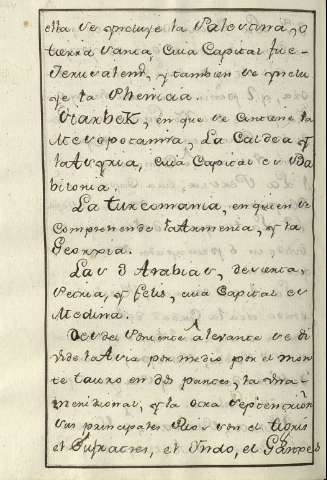 ella se yncluye la Palestina, o
tierra santa, cuia Capital fue
Jerusalem, y tambien se ynclu
ye la Phenicia.
Diarbek, en que se contiene la
Mesopotamia, La Caldea y
la Asyria, cuia Capital es Ba
bilonia.
La Turcomania, en quien se
comprende la Armenia, y la
Georxia.
Las 3 Arabias, desierta,
Petrea, y felis, cuia Capital es
Medina.
Desde Poniente A levante se di
vide la Asia por medio por el mon
te tauro en dos partes, la una
meridional, y la otra septentrion
sus principales Rios son el tigris
el Eufratres, el Yndo, el Ganges